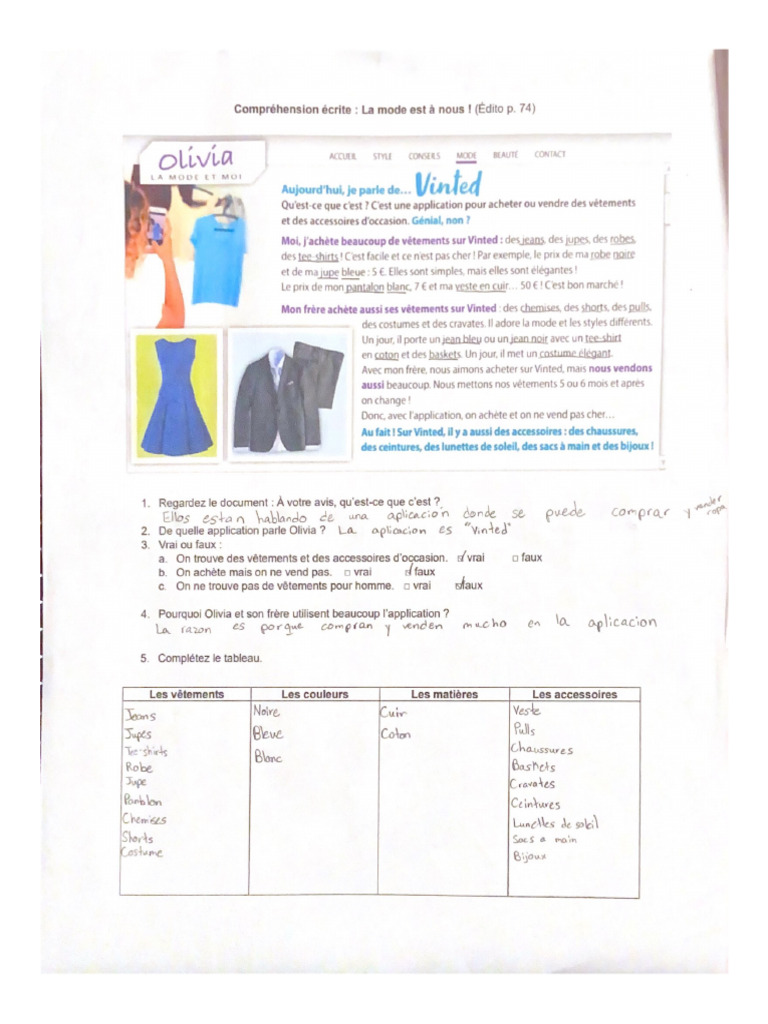 Compréhension écrite : La mode est à nous ! (Édito p. 74)
Olivia
LA MODE ET MOI
ACCUEIL STYLE CONSEILS MODE BEAUTÉ CONTACT
Aujourd'hui, je parle de... Vinted
Qu'est-ce que c'est ? C'est une application pour acheter ou vendre des vêtements
et des accessoires d'occasion. Génial, non ?
Moi, j'achète beaucoup de vêtements sur Vinted : des jeans, des jupes, des robes,
des tee-shirts ! C'est facile et ce n'est pas cher ! Par exemple, le prix de ma robe noire
et de ma jupe bleue : 5 €. Elles sont simples, mais elles sont élégantes !
Le prix de mon pantalon blanc, 7 € et ma veste en cuir... 50 € ! C'est bon marché !
Mon frère achète aussi ses vêtements sur Vinted : des chemises, des shorts, des pulls,
des costumes et des cravates. Il adore la mode et les styles différents.
Un jour, il porte un jean bleu ou un jean noir avec un tee-shirt
en coton et des baskets. Un jour, il met un costume élégant.
Avec mon frère, nous aimons acheter sur Vinted, mais nous vendons
aussi beaucoup. Nous mettons nos vêtements 5 ou 6 mois et après
on change !
Donc, avec l'application, on achète et on ne vend pas cher...
Au fait ! Sur Vinted, il y a aussi des accessoires : des chaussures,
des ceintures, des lunettes de soleil, des sacs à main et des bijoux !
1. Regardez le document : À votre avis, qu'est-ce que c'est ?
Ellos estan hablando de una aplicación donde se puede comprar y vender ropa
2. De quelle application parle Olivia ? La aplicacion es "Vinted"
3. Vrai ou faux :
a. On trouve des vêtements et des accessoires d'occasion. ☑ vrai ☐ faux
b. On achète mais on ne vend pas. ☐ vrai ☑ faux
c. On ne trouve pas de vêtements pour homme. ☐ vrai ☑ faux
4. Pourquoi Olivia et son frère utilisent beaucoup l'application ?
La razon es porque compran y venden mucho en la aplicacion
5. Complétez le tableau.
Les vêtements Les couleurs Les matières Les accessoires
Jeans Noire Cuir Veste
Jupes Bleue Coton Pulls
Tee-shirts Blanc Chaussures
Robe Baskets
Jupe Cravates
Pantlon Ceintures
Chemises Lunettes de soleil
Shorts Sacs a main
Costume Bijoux